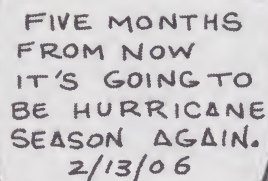 FIVE MONTHS
FROM NOW
IT'S GOING TO
BE HURRICANE
SEASON AGAIN.
2/13/06